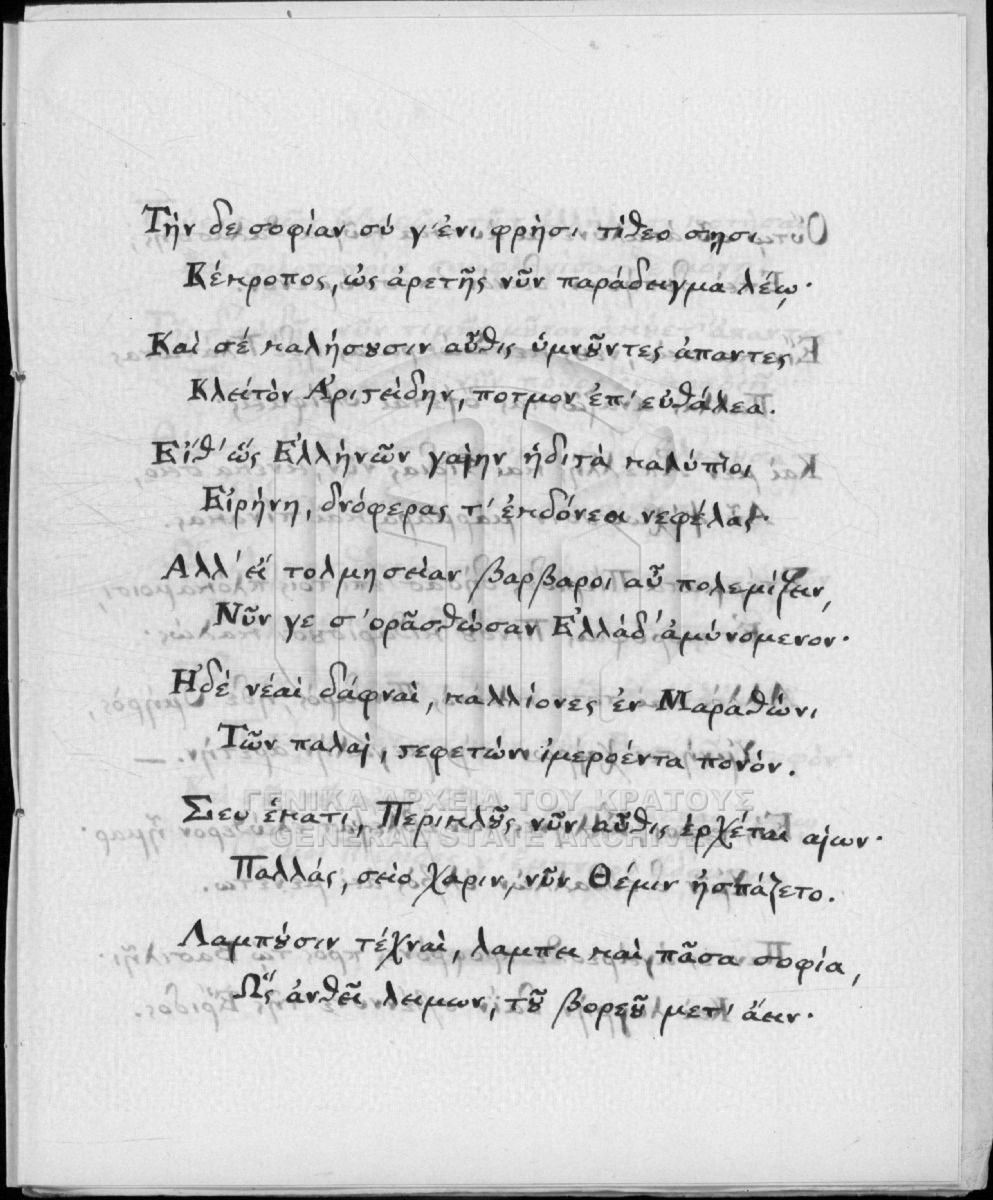 Τήν δε σοφίαν σύ γ' ἐνι φρήσι τίθεο σῃσι,
Κέκροπος, ὡς ἀρετῆς νῦν παράδειγμα λέῳ·
Καί σέ καλήσουσιν αὖθις ὑμνοῦντες ἁπαντες
Κλειτὸν Αριστείδην, ποτμον ἐπ' εὐθάλεα.
Εἴθ' ὥς Ἑλλήνῶν γαίην ἡδιτὰ καλύπτοι
Εἰρήνη, δνόφερας τ' ἐκδόνεοι νεφέλας·
Αλλ' εἰ τολμησείαν βαρβαροι αὖ πολεμίζειν,
Νῦν γε σ' ορᾶσθώσαν Ἑλλάδ' ἀμύνομενον·
Ηδὲ νέαι δάφναὶ, καλλίονες ἐν Μαράθῶνι
Τῶν παλαι, στεφετών ἱμεροέντα πονόν.
Σευ ἑκατι, Περικλοῦς νῦν αὖθις ἐρχέται αἰων·
Παλλάς, σεῖο χαριν, νῦν Θέμιν ἠσπάζετο.
Λαμπούσιν τέχναὶ, λαμπει καὶ πᾶσα σοφία,
Ὥς ἀνθεῖ λειμων, τοῦ βορεοῦ μετ' ἄειν·
ΓΕΝΙΚΑ ΑΡΧΕΙΑ ΤΟΥ ΚΡΑΤΟΥΣ
GENERAL STATE ARCHIVES